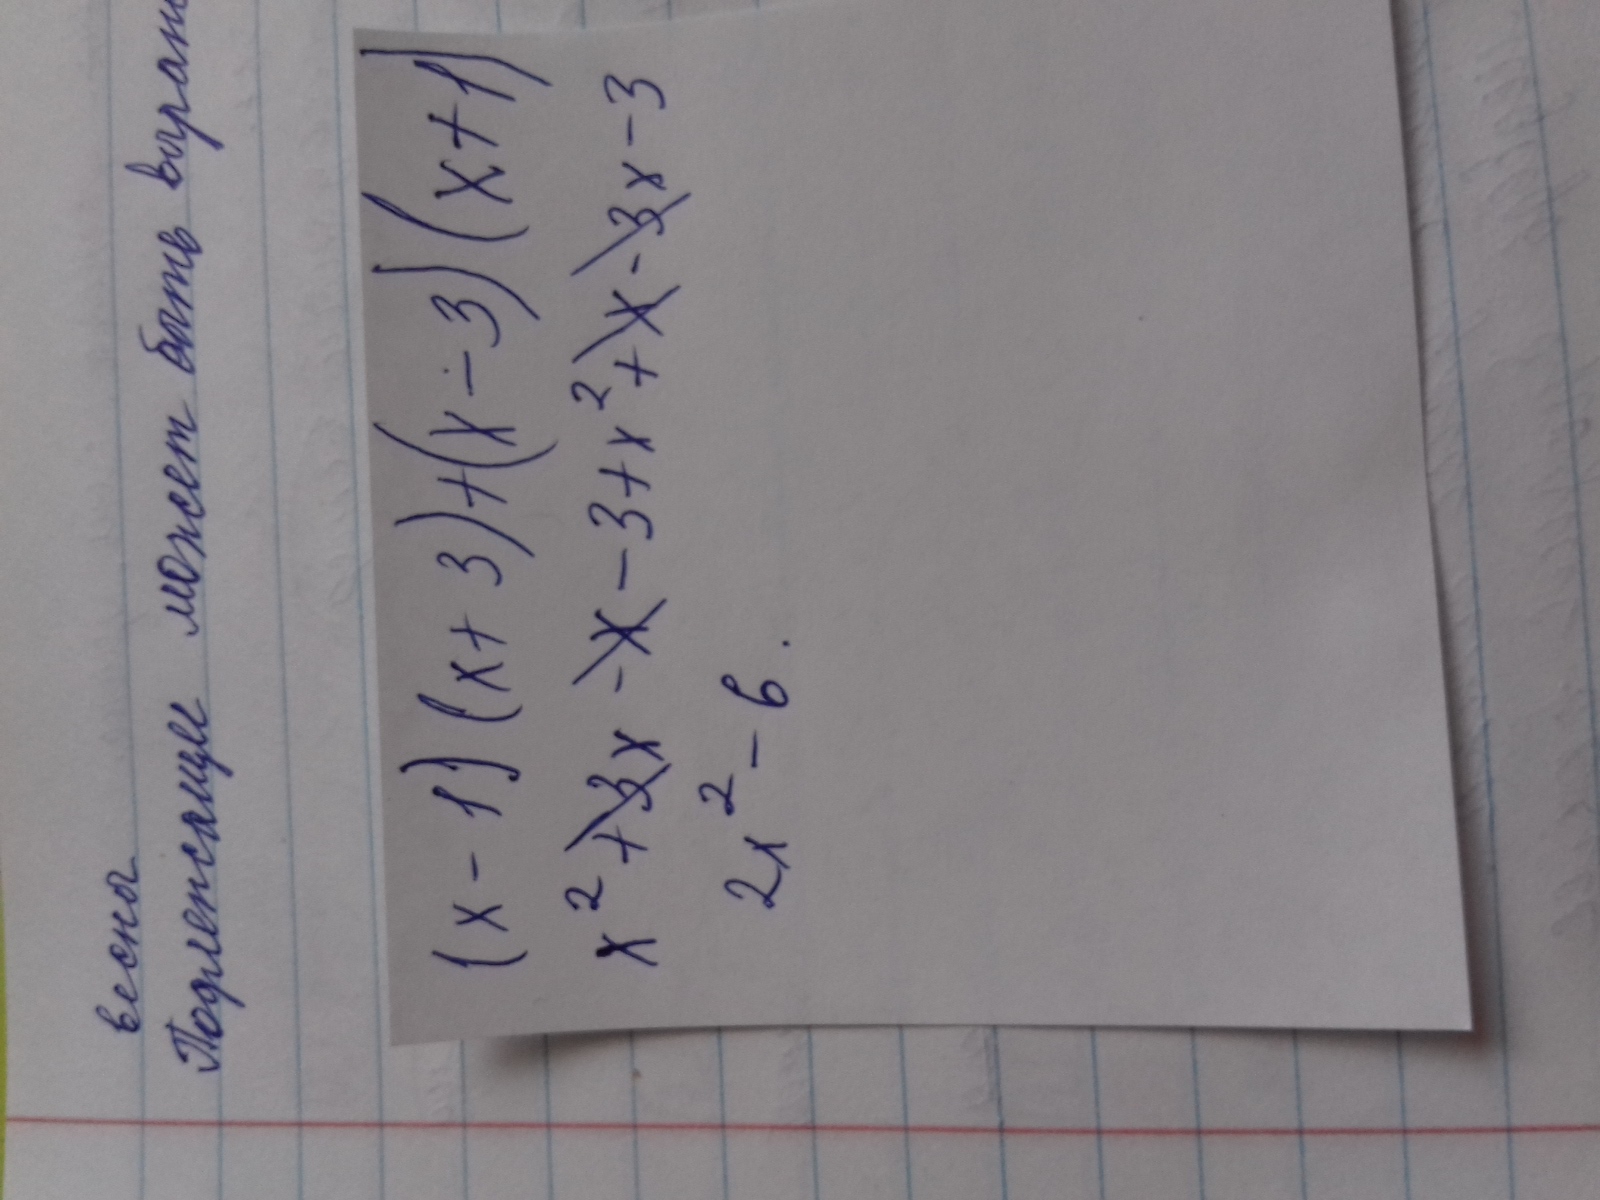 весна
Подлежащим может быть выраже
(x-1)(x+3)+(x-3)(x+1)
x²+3x-x-3+x²+x-3x-3
2x²-6.